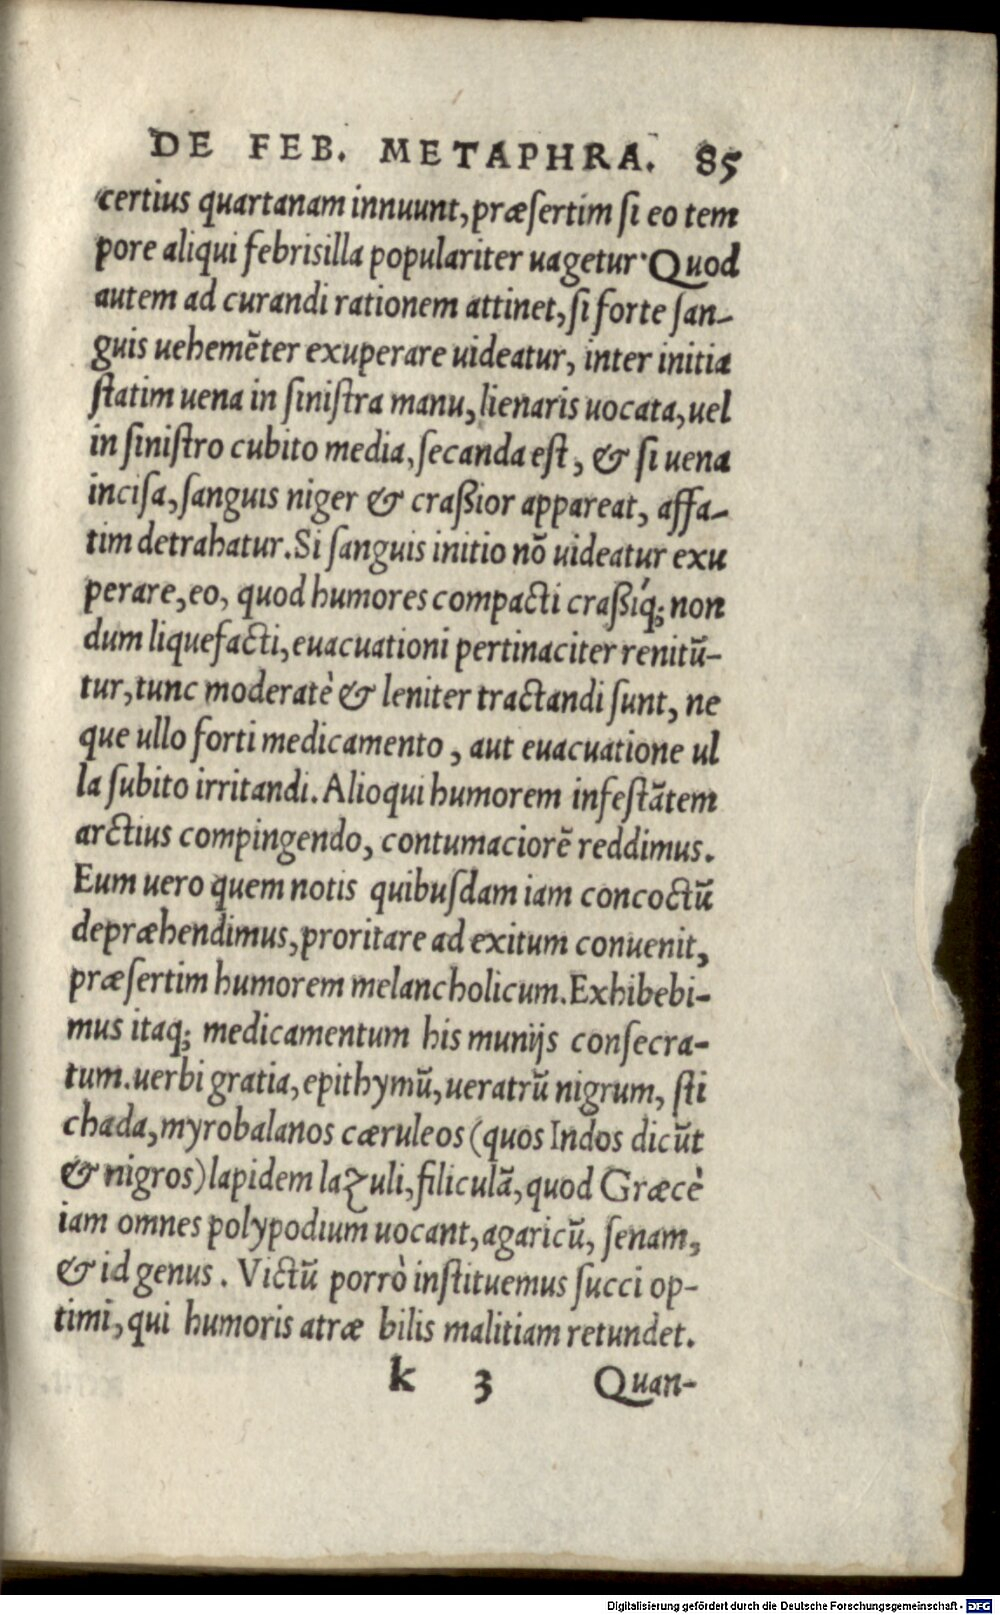 DE FEB. METAPHRA. 85
certius quartanam innuunt, præſertim ſi eo tem
pore aliqui febris illa populariter uagetur. Quod
autem ad curandi rationem attinet, ſi forte ſan-
guis uehemẽter exuperare uideatur, inter initia
ſtatim uena in ſiniſtra manu, lienaris uocata, uel
in ſiniſtro cubito media, ſecanda eſt, & ſi uena
inciſa, ſanguis niger & craßior appareat, affa-
tim detrahatur. Si ſanguis initio nõ uideatur exu
perare, eo, quod humores compacti craßiq́; non
dum liquefacti, euacuationi pertinaciter renitũ-
tur, tunc moderatè & leniter tractandi ſunt, ne
que ullo forti medicamento, aut euacuatione ul
la ſubito irritandi. Alioqui humorem infeſtãtem
arctius compingendo, contumaciorẽ reddimus.
Eum uero quem notis quibuſdam iam concoctũ
depræhendimus, proritare ad exitum conuenit,
præſertim humorem melancholicum. Exhibebi-
mus itaq; medicamentum his munijs conſecra-
tum. uerbi gratia, epithymũ, ueratrũ nigrum, ſti
chada, myrobalanos cæruleos (quos Indos dicũt
& nigros) lapidem lazuli, filiculã, quod Græcè
iam omnes polypodium uocant, agaricũ, ſenam,
& id genus. Victũ porrò inſtituemus ſucci op-
timi, qui humoris atræ bilis malitiam retundet.
k 3 Quan-
Digitalisierung gefördert durch die Deutsche Forschungsgemeinschaft - DFG